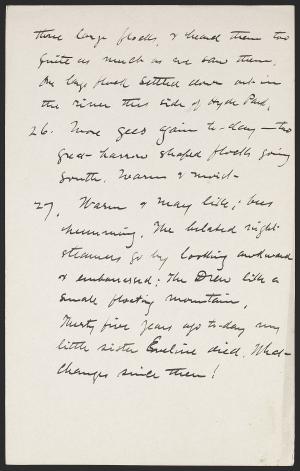 three large flocks, & heard them too
quite as much as we saw them.
One large flock settled down out in
the river this side of Hyde Park.
26. More geese again to-day — two
great harrow shaped flocks going
South. Warm & moist -
27, Warm & May like; bees
humming. The belated night
steamers go by looking awkward
& embarrassed; the Drew like a
small floating mountain.
Thirty five years ago to-day my
little sister Eveline died. What
changes since then!